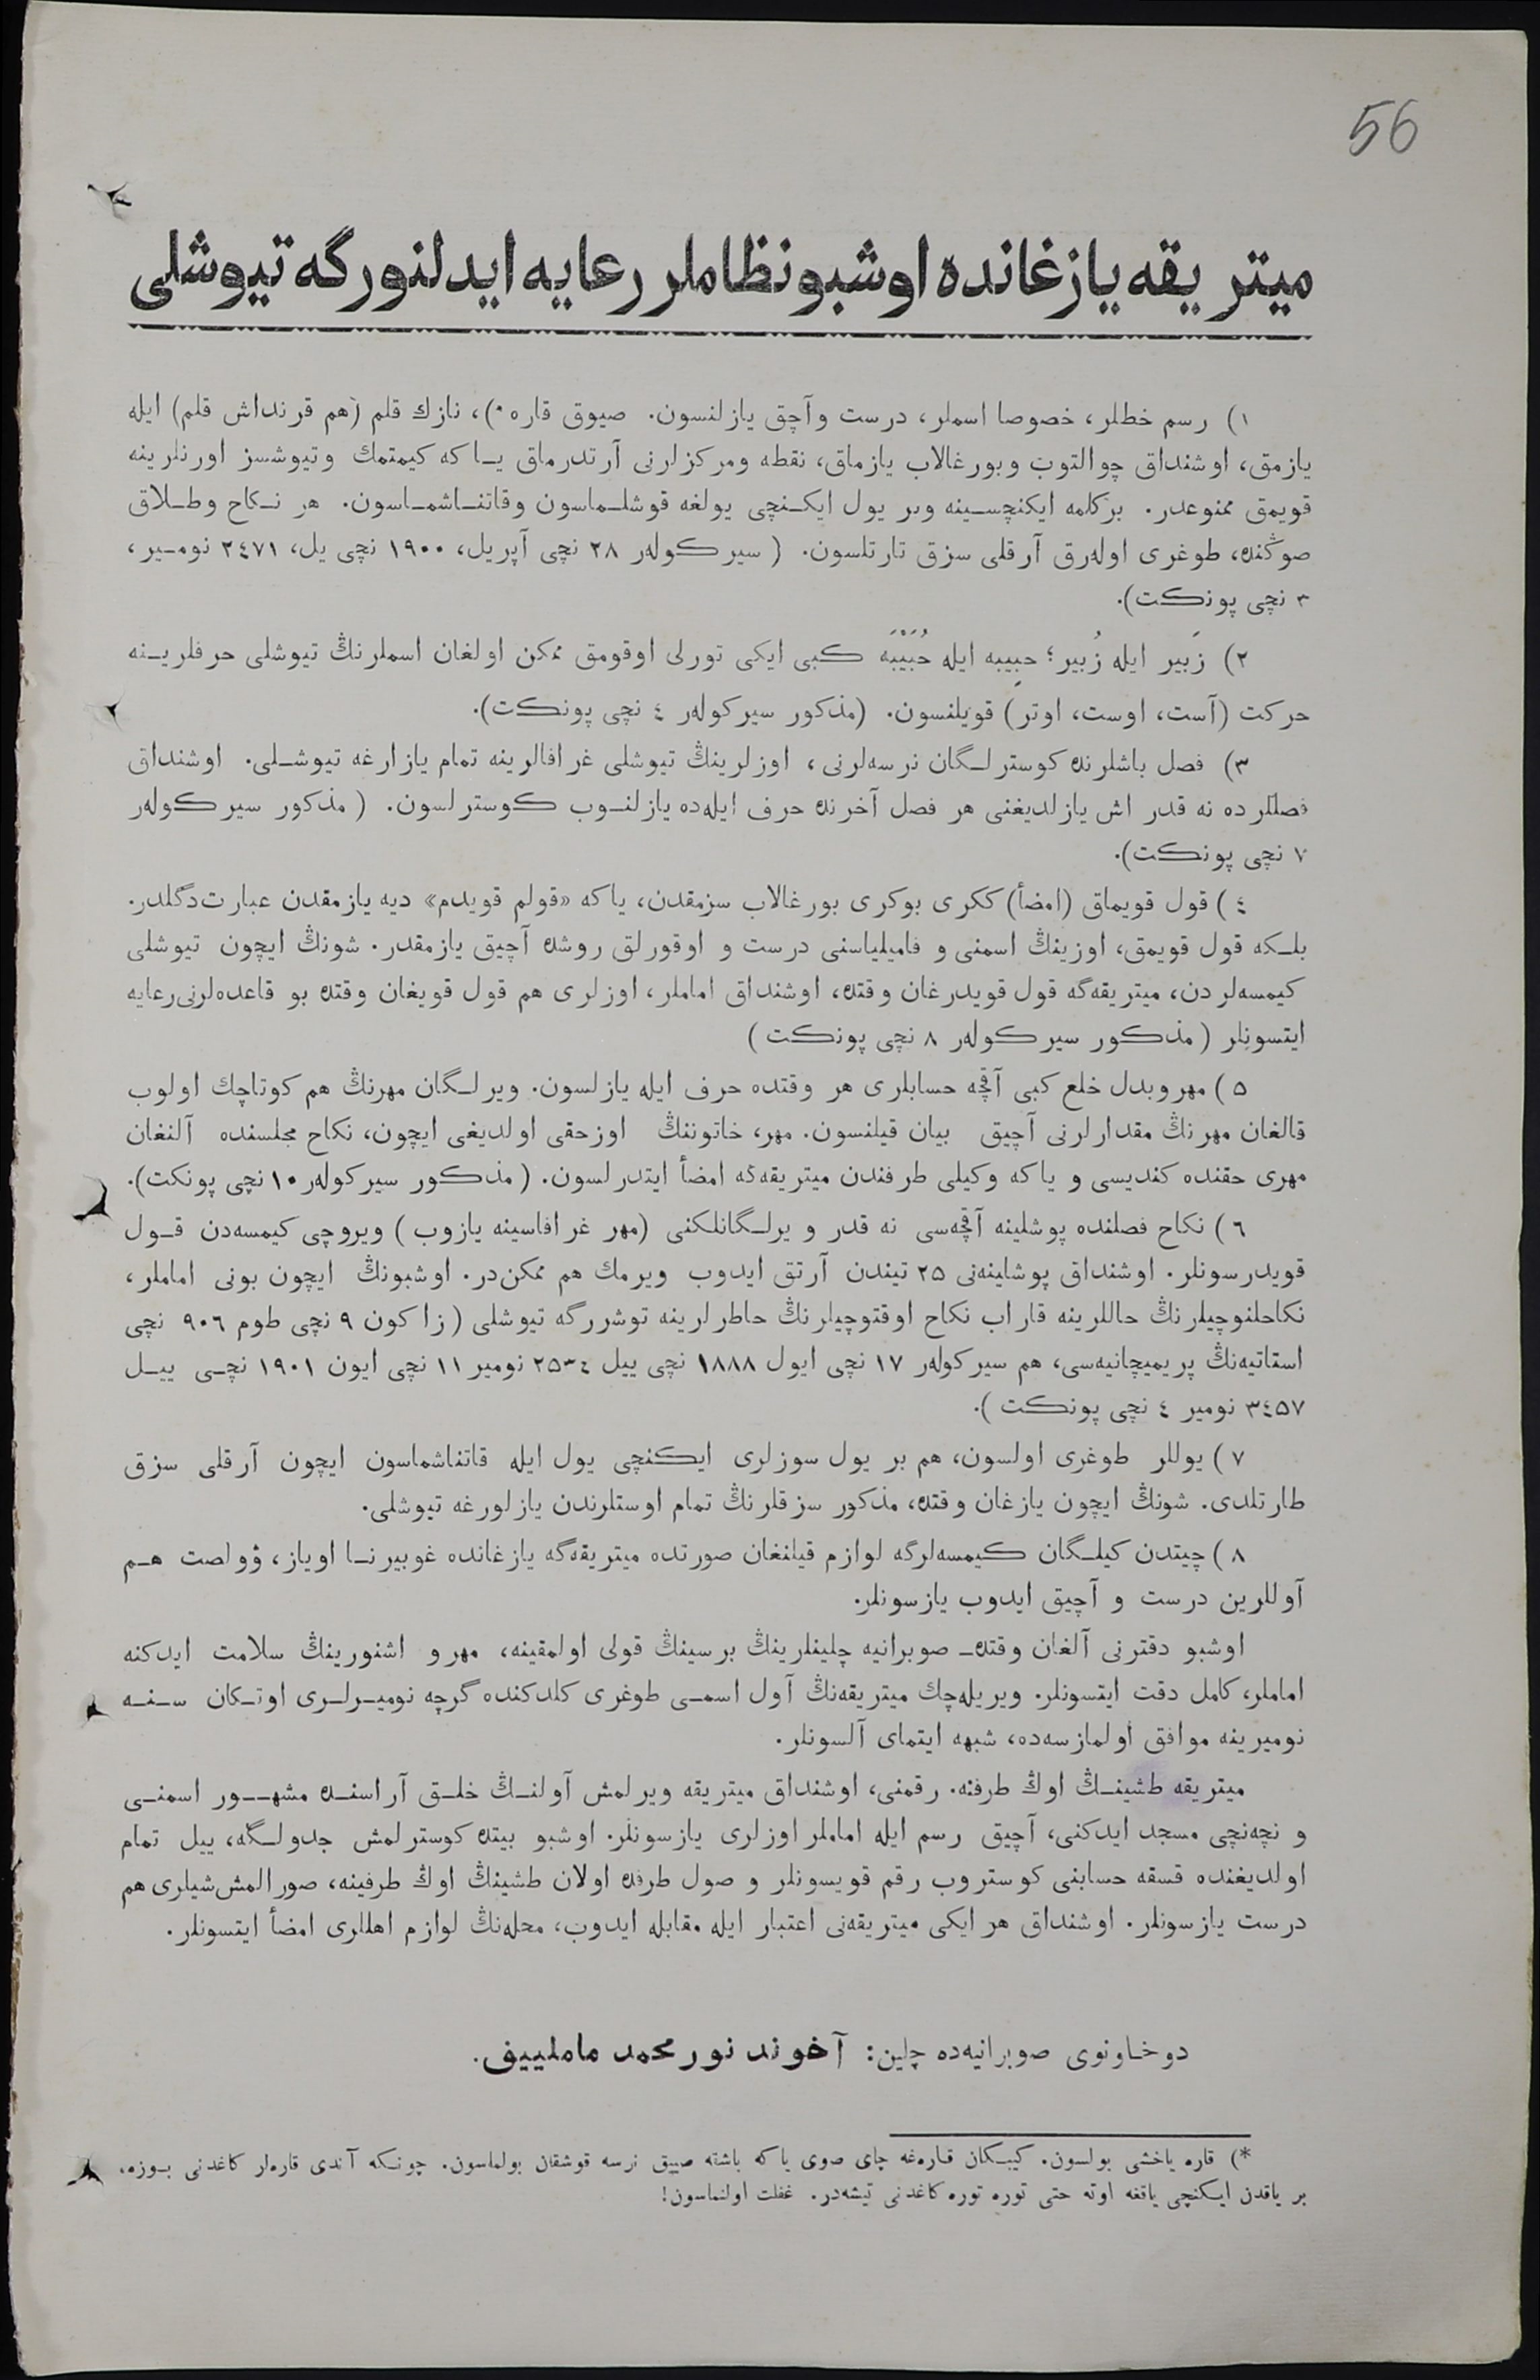 56
ميتريقه يازغانده اوشبو نظاملر رعايه ايدلنورگه تيوشلى
١) رسم خطلر، خصوصا اسملر، درست وآچق يازلنسون. صيوق قاره*)، نازك قلم (هم قرنداش قلم) ايله
يازمق، اوشنداق چوالتوب وبورغالاب يازماق، نقطه ومركزلرنى آرتدرماق ياكه كيمتمك وتيوشسز اورنلرينه
قويمق ممنوعدر. بركلمه ايكنچسينه وبر يول ايكنچى يولغه قوشلماسون وقاتناشماسون. هر نكاح وطلاق
صوڭنده، طوغرى اوله‌رق آرقلى سزق تارتلسون. (سيركولەر ٢٨ نچى آپريل، ١٩٠٠ نچى يل، ٢٤٧١ نومير،
٣ نچى پونكت).
٢) زَبير ايله زُبير؛ حبِيبه ايله حُبَيْبَه كبى ايكى تورلى اوقومق ممكن اولغان اسملرنڭ تيوشلى حرفلرينه
حركت (آست، اوست، اوتر) قويلنسون. (مذكور سيركولەر ٤ نچى پونكت).
٣) فصل باشلرنده كوسترلگان نرسه‌لرنى، اوزلرينڭ تيوشلى غرافالرينه تمام يازارغه تيوشلى. اوشنداق
فصللرده نه قدر اش يازلديغنى هر فصل آخرنده حرف ايله‌ده يازلنوب كوسترلسون. (مذكور سيركولەر
٧ نچى پونكت).
٤) قول قويماق (امضأ) ككرى بوكرى بورغالاب سزمقدن، ياكه «قولم قويدم» ديه يازمقدن عبارت‌دگلدر.
بلكه قول قويمق، اوزينڭ اسمنى و فاميلياسنى درست و اوقورلق روشده آچيق يازمقدر. شونڭ ايچون تيوشلى
كيمسه‌لردن، ميتريقه‌گه قول قويدرغان وقتده، اوشنداق اماملر، اوزلرى هم قول قويغان وقتده بو قاعده‌لرنى‌رعايه
ايتسونلر (مذكور سيركولەر ٨ نچى پونكت)
٥) مهر وبدل خلع كبى آقچه حسابلرى هر وقتده حرف ايله يازلسون. ويرلگان مهرنڭ هم كوتاچك اولوب
قالغان مهرنڭ مقدارلرنى آچيق بيان قيلنسون. مهر، خاتوننڭ اوزحقى اولديغى ايچون، نكاح مجلسنده آلنغان
مهرى حقنده كنديسى و ياكه وكيلى طرفندن ميتريقه‌گه امضأ ايتدرلسون. (مذكور سيركولەر ١٠ نچى پونكت).
٦) نكاح فصلنده پوشلينه آقچه‌سى نه قدر و يرلگانلكنى (مهر غرافاسينه يازوب) ويروچى كيمسه‌دن قول
قويدرسونلر. اوشنداق پوشلينه‌نى ٢٥ تيندن آرتق ايدوب ويرمك هم ممكن‌در. اوشبونڭ ايچون بونى اماملر،
نكاحلنوچيلرنڭ حاللرينه قاراب نكاح اوقتوچيلرنڭ خاطرلرينه توشررگه تيوشلى (زاكون ٩ نچى طوم ٩٠٦ نچى
استاتيه‌نڭ پريميچانيه‌سى، هم سيركولەر ١٧ نچى ايول ١٨٨٨ نچى ييل ٢٥٣٤ نومير ١١ نچى ايون ١٩٠١ نچى ييل
٣٤٥٧ نومير ٤ نچى پونكت).
٧) يوللر طوغرى اولسون، هم بر يول سوزلرى ايكنچى يول ايله قاتناشماسون ايچون آرقلى سزق
طارتلدى. شونڭ ايچون يازغان وقتده، مذكور سزقلرنڭ تمام اوستلرندن يازلورغه تيوشلى.
٨) چيتدن كيلگان كيمسه‌لرگه لوازم قيلنغان صورتده ميتريقه‌گه يازغانده غوبيرنا اوياز، ۋولصت هم
آوللرين درست و آچيق ايدوب يازسونلر.
اوشبو دفترنى آلغان وقتده صوبرانيه چلينلرينڭ برسينڭ قولى اولمقينه، مهر و اشنورينڭ سلامت ايدكنه
اماملر، كامل دقت ايتسونلر. ويريله‌چك ميتريقه‌نڭ آول اسمى طوغرى كلدكنده گرچه نوميرلرى اوتكان سنه
نوميرينه موافق اولمازسه‌ده، شبهه ايتماى آلسونلر.
ميتريقه طشينڭ اوڭ طرفنه. رقمنى، اوشنداق ميتريقه ويرلمش آولنڭ خلق آراسنده مشهور اسمنى
و نچه‌نچى مسجد ايدكنى، آچيق رسم ايله اماملر اوزلرى يازسونلر. اوشبو بيتده كوسترلمش جدولگه، ييل تمام
اولديغنده قسقه حسابنى كوستروب رقم قويسونلر و صول طرفده اولان طشينڭ اوڭ طرفينه، صورالمش‌شيلرى هم
درست يازسونلر. اوشنداق هر ايكى ميتريقه‌نى اعتبار ايله مقابله ايدوب، محله‌نڭ لوازم اهللرى امضأ ايتسونلر.
دوخاونوى صوبرانيه‌ده چلين: آخوند نورمحمد ماملييف.
*) قاره ياخشى بولسون. كيبكان قاره‌غه چاى صوى ياكه باشقه صييق نرسه قوشقان بولماسون. چونكه آندى قاره‌لر كاغدنى بوزه،
بر ياقدن ايكنچى ياقغه اوته حتى توره توره كاغدنى تيشه‌در. غفلت اولنماسون!